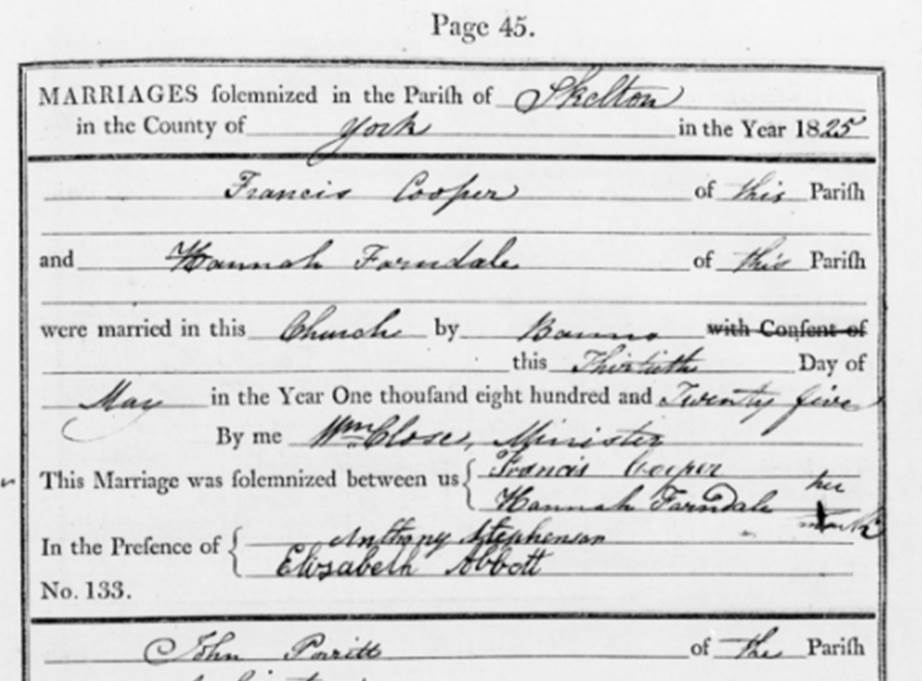 Page 45.
MARRIAGES ſolemnized in the Pariſh of Skelton
in the County of York in the Year 1825
Francis Cooper of this Pariſh
and Hannah Farndale of this Pariſh
were married in this Church by Banns with Conſent of
this Thirtieth Day of
May in the Year One thouſand eight hundred and Twenty five
By me Wm Close, Minister
This Marriage was ſolemnized between us { Francis Cooper
Hannah Farndale her mark
In the Preſence of { Anthony Stephenson
Elisabeth Abbott
No. 133.
John of the Pariſh